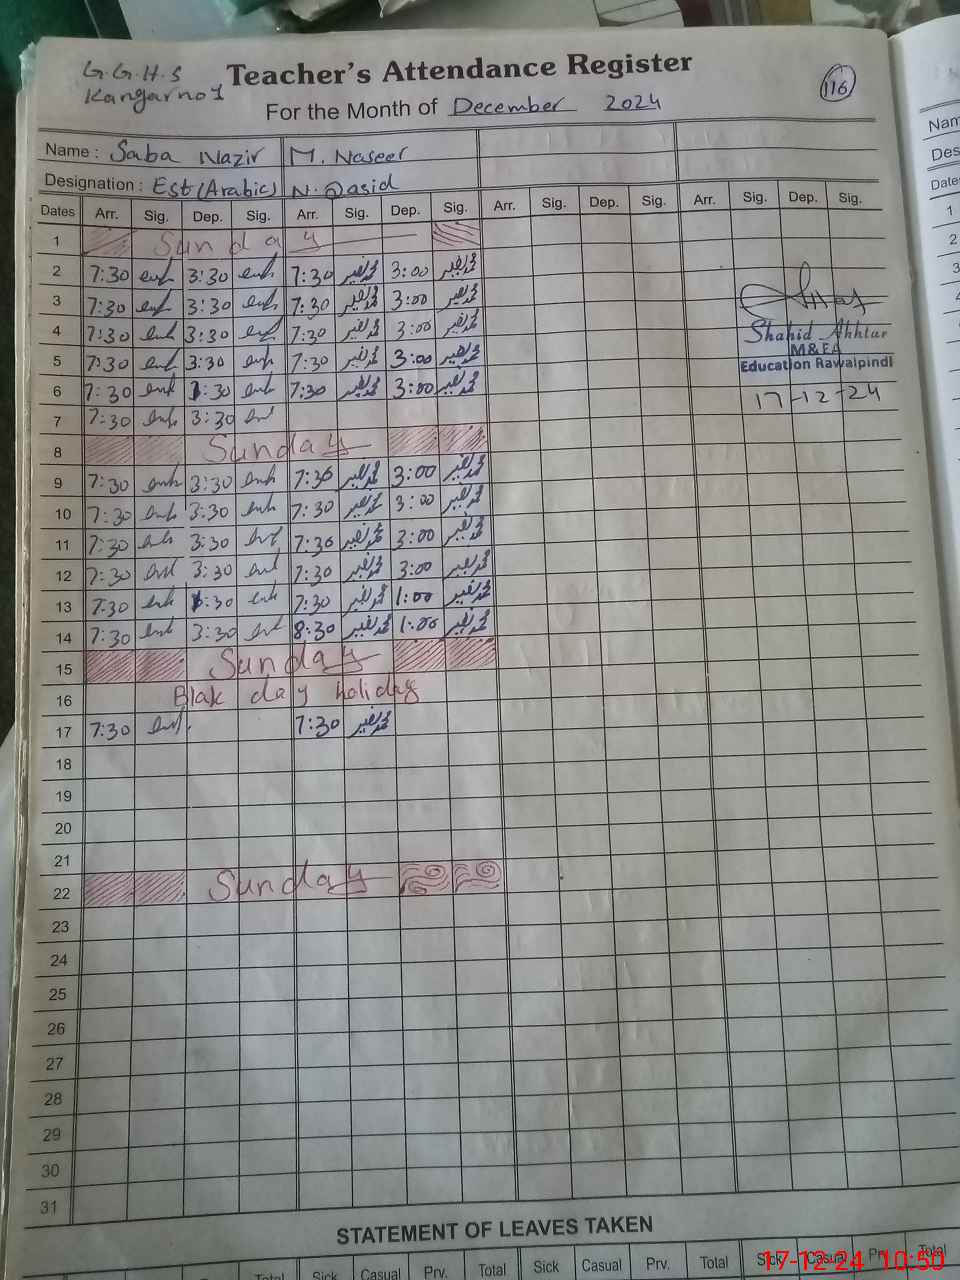 G.G.H.S
Kangar no 1
Teacher's Attendance Register
116
For the Month of December 2024
Name : Saba Nazir M. Naseer
Designation : Est (Arabic) N. Qasid
Dates Arr. Sig. Dep. Sig. Arr. Sig. Dep. Sig. Arr. Sig. Dep. Sig. Arr. Sig. Dep. Sig.
1 Sunday
2 7:30 3:30 7:30 محمد نصیر 3:00 محمد نصیر
3 7:30 3:30 7:30 محمد نصیر 3:00 محمد نصیر
4 7:30 3:30 7:30 محمد نصیر 3:00 محمد نصیر
5 7:30 3:30 7:30 محمد نصیر 3:00 محمد نصیر
6 7:30 :30 7:30 محمد نصیر 3:00 محمد نصیر
7 7:30 3:30
8 Sunday
9 7:30 3:30 7:30 محمد نصیر 3:00 محمد نصیر
10 7:30 3:30 7:30 محمد نصیر 3:00 محمد نصیر
11 7:30 3:30 7:30 محمد نصیر 3:00 محمد نصیر
12 7:30 3:30 7:30 محمد نصیر 3:00 محمد نصیر
13 7:30 :30 7:30 محمد نصیر 1:00 محمد نصیر
14 7:30 3:30 8:30 محمد نصیر 1:00 محمد نصیر
15 Sunday
16 Blak day holiday
17 7:30 7:30 محمد نصیر
18
19
20
21
22 Sunday
23
24
25
26
27
28
29
30
31
Shahid Akhtar
M&EA
Education Rawalpindi
17-12-24
STATEMENT OF LEAVES TAKEN
Total Sick Casual Prv. Total Sick Casual Prv. Total Sick Casual Prv. Total
17-12-24 10:50
Nam
Des
Dates
1
2
3